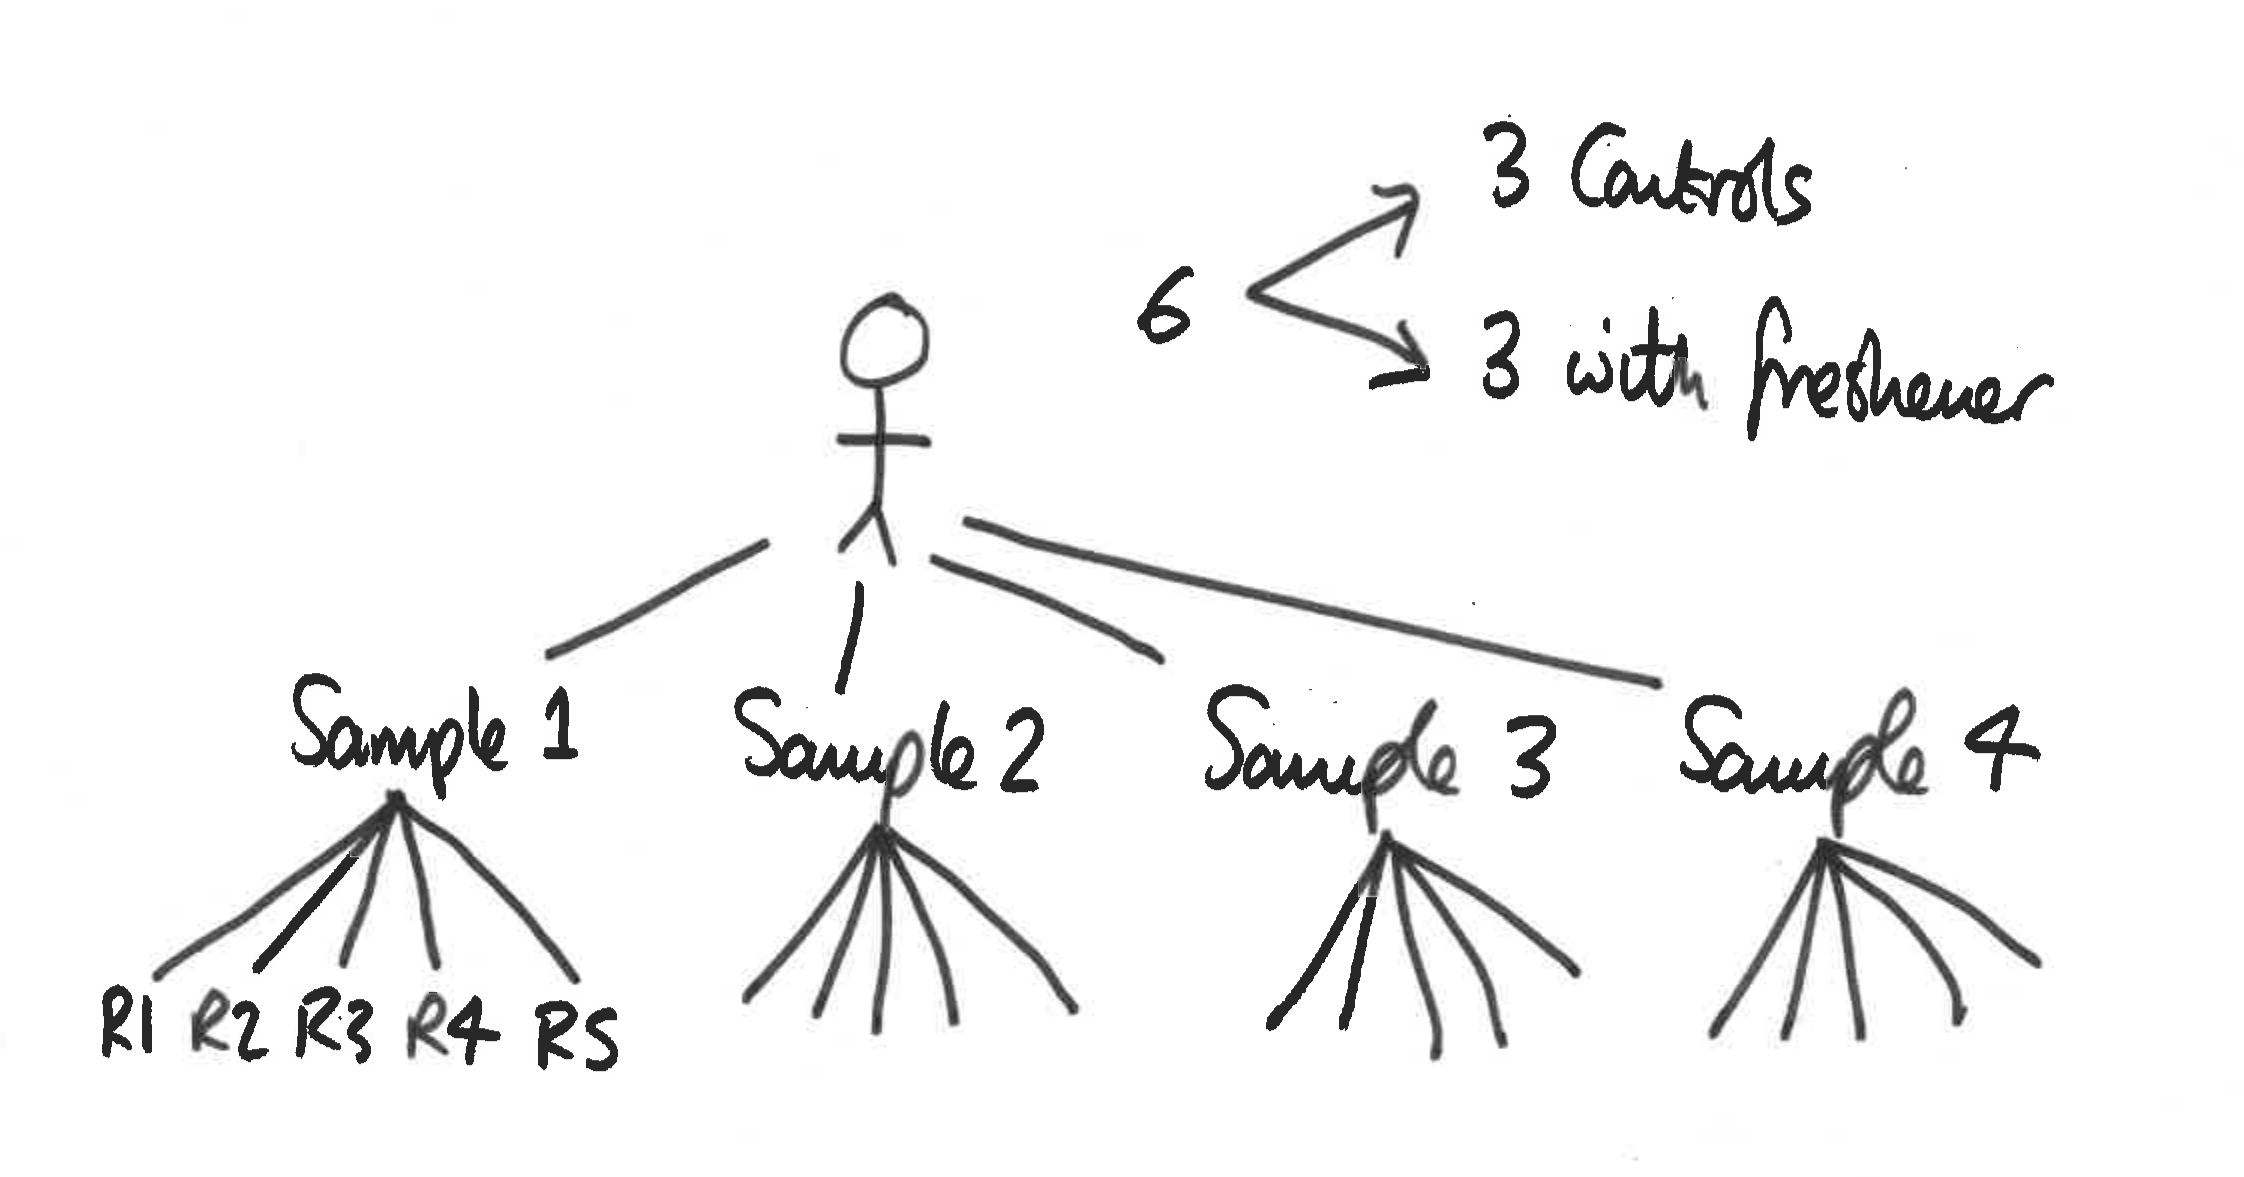 3 Controls
6
3 with freshener
Sample 1 Sample 2 Sample 3 Sample 4
R1 R2 R3 R4 R5